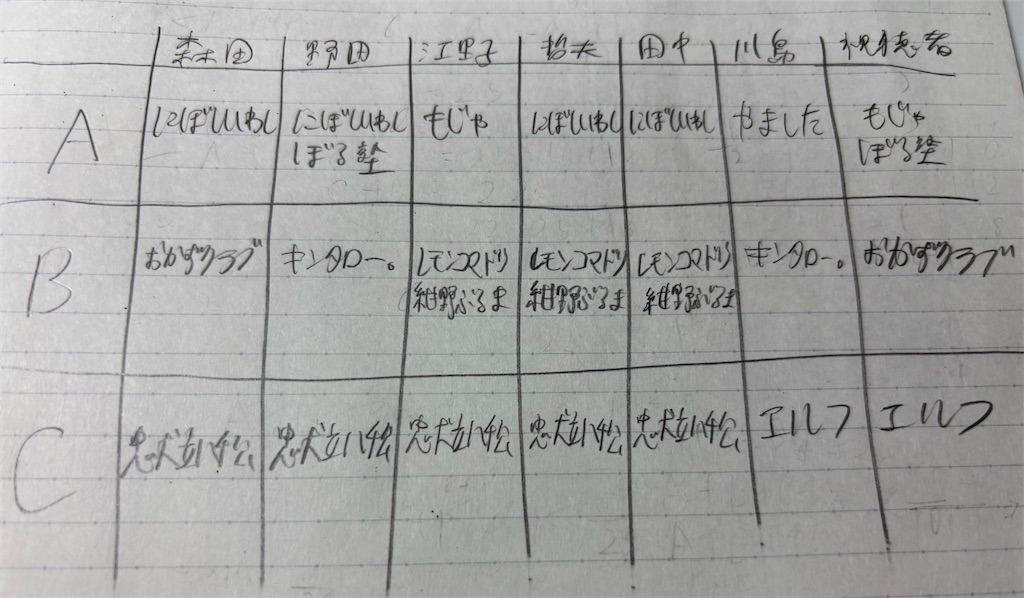 森田 野田 江里子 哲夫 田中 川島 視聴者
A にぼしいわし にぼしいわし もじゃ にぼしいわし にぼしいわし やました もじゃ
ぼる塾 ぼる塾
B おかずクラブ キンタロー。 レモンコマドリ レモンコマドリ レモンコマドリ キンタロー。 おかずクラブ
紺野ぶるま 紺野ぶるま 紺野ぶるま
C 忠犬立ハチ公 忠犬立ハチ公 忠犬立ハチ公 忠犬立ハチ公 忠犬立ハチ公 エルフ エルフ